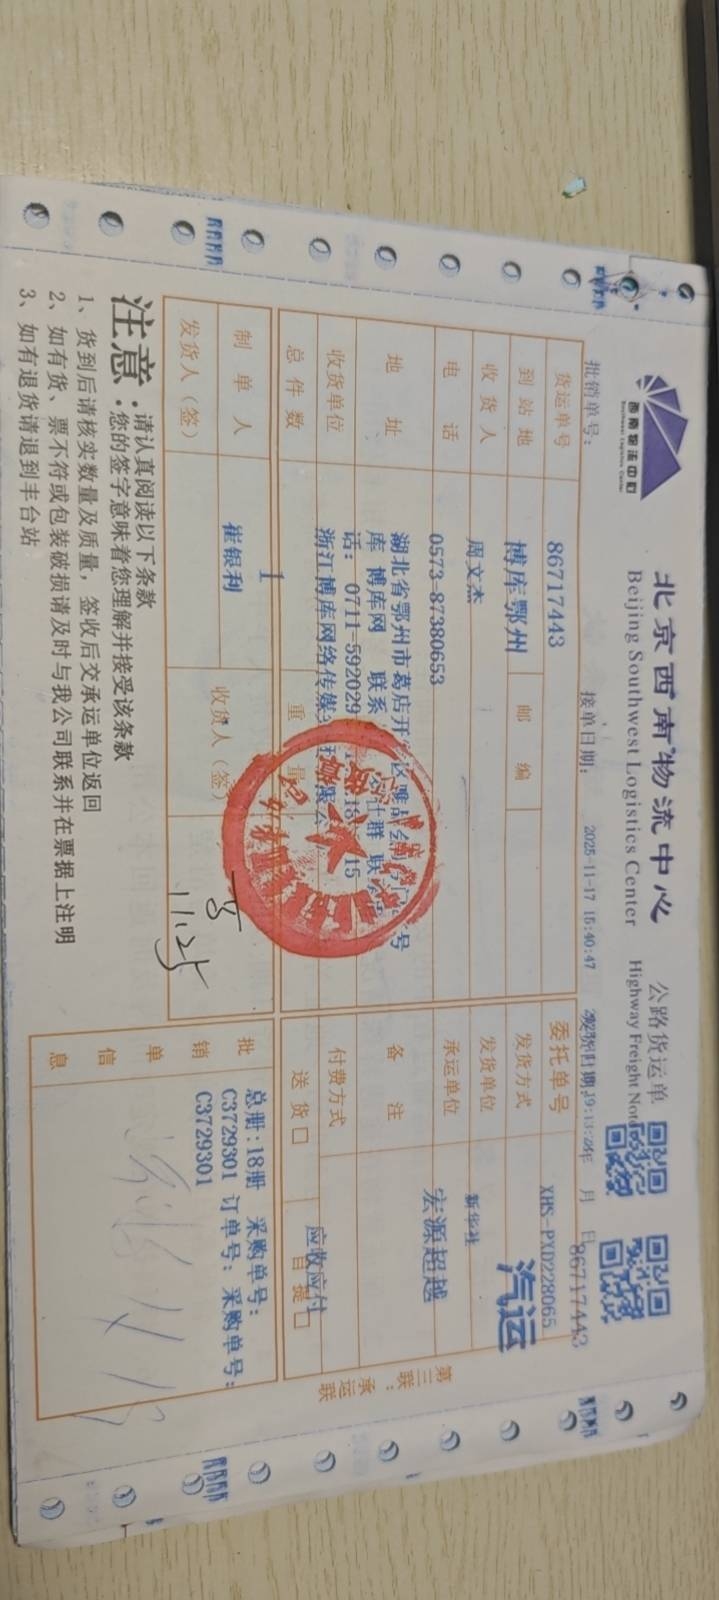 西南物流中心
Southwest Logistics Center
北京西南物流中心
Beijing Southwest Logistics Center
公路货运单
Highway Freight Note
批销单号：
接单日期： 2025-11-17 15:40:47
年 月 日
86717443
货运单号 86717443
委托单号 XHS-PXD228065
到站地 博库鄂州 邮 编
发货方式 汽运
收 货 人 周文杰
发货单位 新华社
电 话 0573-87380653
承运单位 宏源超越
地 址 湖北省鄂州市葛店开
库 博库网 联系
话： 0711-592029
备 注
收货单位 浙江博库网络传媒
付费方式 应收应付
总 件 数 1 重 量
送 货 □ 自 提 □
制 单 人 崔银利 收货人（签）
发货人（签）
11.25
批 销 单 信 息
总册:18册 采购单号:
C3729301 订单号: 采购单号:
C3729301
第三联：承运联
注意：
请认真阅读以下条款
您的签字意味着您理解并接受该条款
1、货到后请核实数量及质量，签收后交承运单位返回
2、如有货、票不符或包装破损请及时与我公司联系并在票据上注明
3、如有退货请退到丰台站